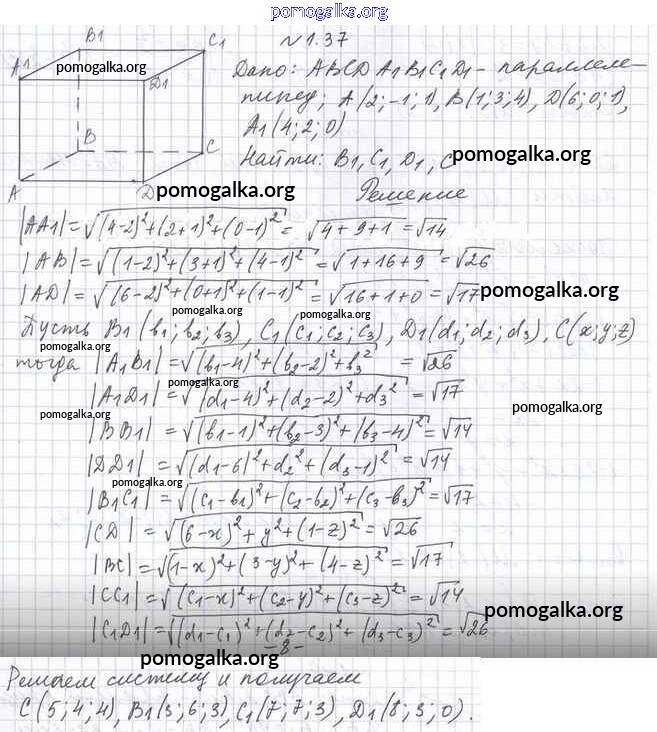 pomogalka.org
B1
C1
N1.37
A1
pomogalka.org
D1
Дано: ABCD A1B1C1D1 - параллеле-
пипед; A(2;-1;1), B(1;3;4), D(6;0;1),
A1(4;2;0)
B
C
Найти: B1, C1, D1, C
pomogalka.org
A
D
pomogalka.org
Решение
|AA1|=√((4-2)²+(2+1)²+(0-1)²)=√(4+9+1)=√14
|AB|=√((1-2)²+(3+1)²+(4-1)²)=√(1+16+9)=√26
|AD|=√((6-2)²+(0+1)²+(1-1)²)=√(16+1+0)=√17
pomogalka.org
pomogalka.org
Пусть B1(b1;b2;b3), C1(c1;c2;c3), D1(d1;d2;d3), C(x;y;z)
pomogalka.org
тогда |A1B1|=√((b1-4)²+(b2-2)²+b3²)=√26
pomogalka.org
|A1D1|=√((d1-4)²+(d2-2)²+d3²)=√17
pomogalka.org
pomogalka.org
|BB1|=√((b1-1)²+(b2-3)²+(b3-4)²)=√14
|DD1|=√((d1-6)²+d2²+(d3-1)²)=√14
pomogalka.org
|B1C1|=√((c1-b1)²+(c2-b2)²+(c3-b3)²)=√17
|CD|=√((6-x)²+y²+(1-z)²)=√26
|BC|=√((1-x)²+(3-y)²+(4-z)²)=√17
|CC1|=√((c1-x)²+(c2-y)²+(c3-z)²)=√14
pomogalka.org
|C1D1|=√((d1-c1)²+(d2-c2)²+(d3-c3)²)=√26
-8-
pomogalka.org
Решаем систему и получаем
C(5;4;4), B1(3;6;3), C1(7;7;3), D1(8;3;0).